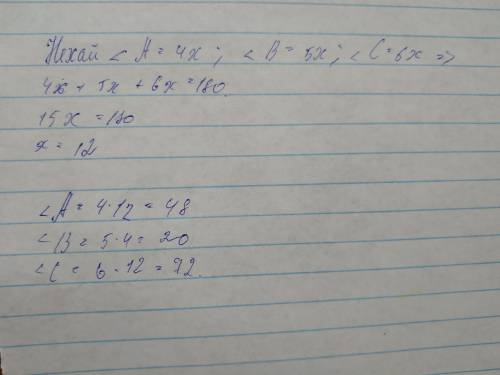 Нехай < A = 4x ; < B = 5x ; < C = 6x =>
4x + 5x + 6x = 180.
15x = 180
x = 12
< A = 4·12 = 48
< B = 5·4 = 20
< C = 6·12 = 92.